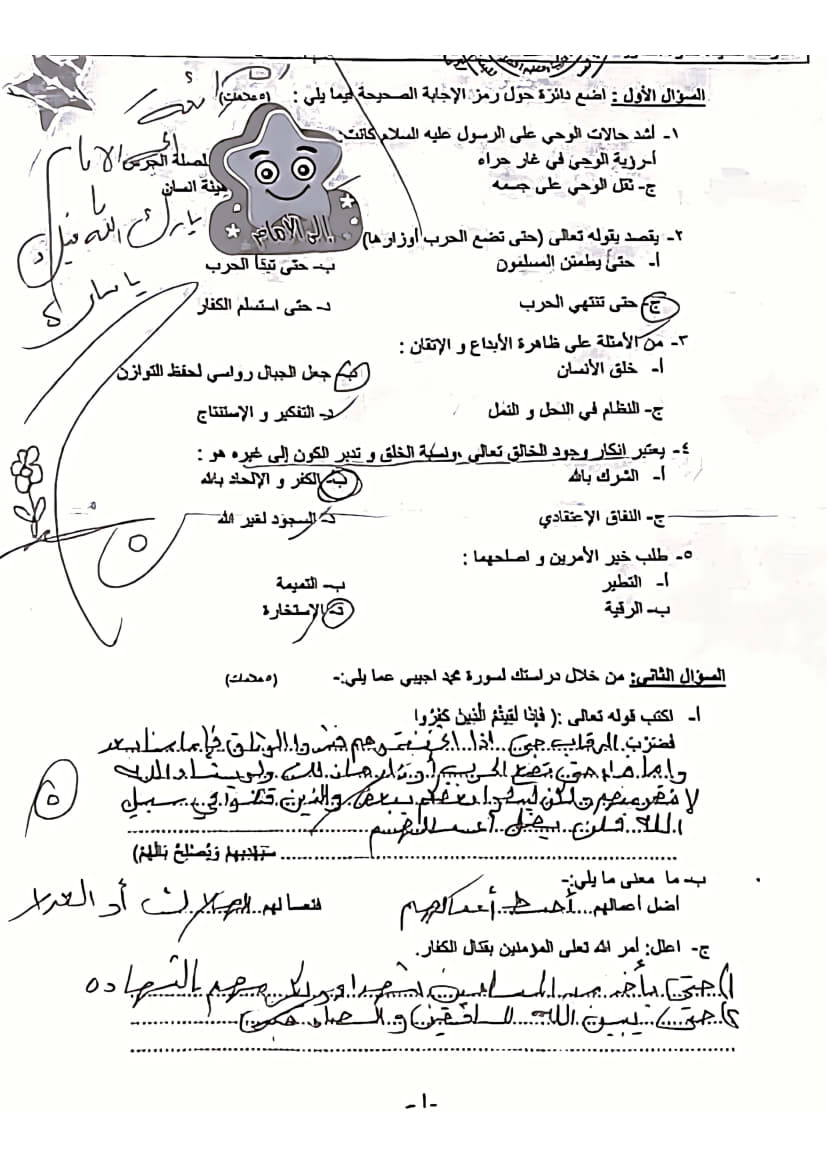 السؤال الأول: اضع دائرة حول رمز الإجابة الصحيحة فيما يلي : (٥ علامات)
١- أشد حالات الوحي على الرسول عليه السلام كانت:
أ. رؤية الوحي في غار حراء
ج- ثقل الوحي على جسمه
إلى الأمام
بارك الله فيك
يا سارة
٢- يقصد بقوله تعالى (حتى تضع الحرب أوزارها)
أ- حتى يطمئن المسلمون ب- حتى تبدأ الحرب
ج- حتى تنتهي الحرب د- حتى استسلم الكفار
٣- من الأمثلة على ظاهرة الأبداع و الإتقان :
أ- خلق الأنسان ب- جعل الجبال رواسي لحفظ التوازن
ج- النظام في النحل و النمل د- التفكير و الإستنتاج
٤- يعتبر انكار وجود الخالق تعالى ،ونسبة الخلق و تدبر الكون إلى غيره هو :
أ- الشرك بالله ب- الكفر و الإلحاد بالله
ج- النفاق الإعتقادي د- السجود لغير الله
٥
٥- طلب خير الأمرين و اصلحهما :
أ- التطير ب- التميمة
ب- الرقية د- الإستخارة
السؤال الثاني: من خلال دراستك لسورة محمد اجيبي عما يلي:- (٥ علامات)
أ- اكتب قوله تعالى :( فَإِذَا لَقِيتُمُ الَّذِينَ كَفَرُوا
فضرب الرقاب حتى اذا اثخنتموهم فشدوا الوثاق فإما منا بعد
وإما فداء حتى تضع الحرب أوزارها ذلك ولو يشاء الله
لانتصر منهم ولكن ليبلوا بعضكم ببعض والذين قتلوا في سبيل
الله فلن يضل أعمالهم
سَيَهْدِيهِمْ وَيُصْلِحُ بَالَهُمْ)
٥
ب- ما معنى ما يلي:-
اضل اعمالهم أحبط أعمالهم فتعسا لهم
ج- اعلل: أمر الله تعلى المؤمنين بقتال الكفار.
١) حتى يأخذ من المسلمين شهداء ويكرمهم بالشهادة
٢) حتى يبين الله المنافقين والصادقين
-١-